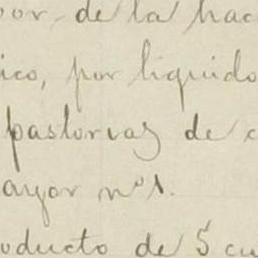 por de la hac
ico, por liquido
pastorias de c
ayor nº 1.
oducto de 5 cu